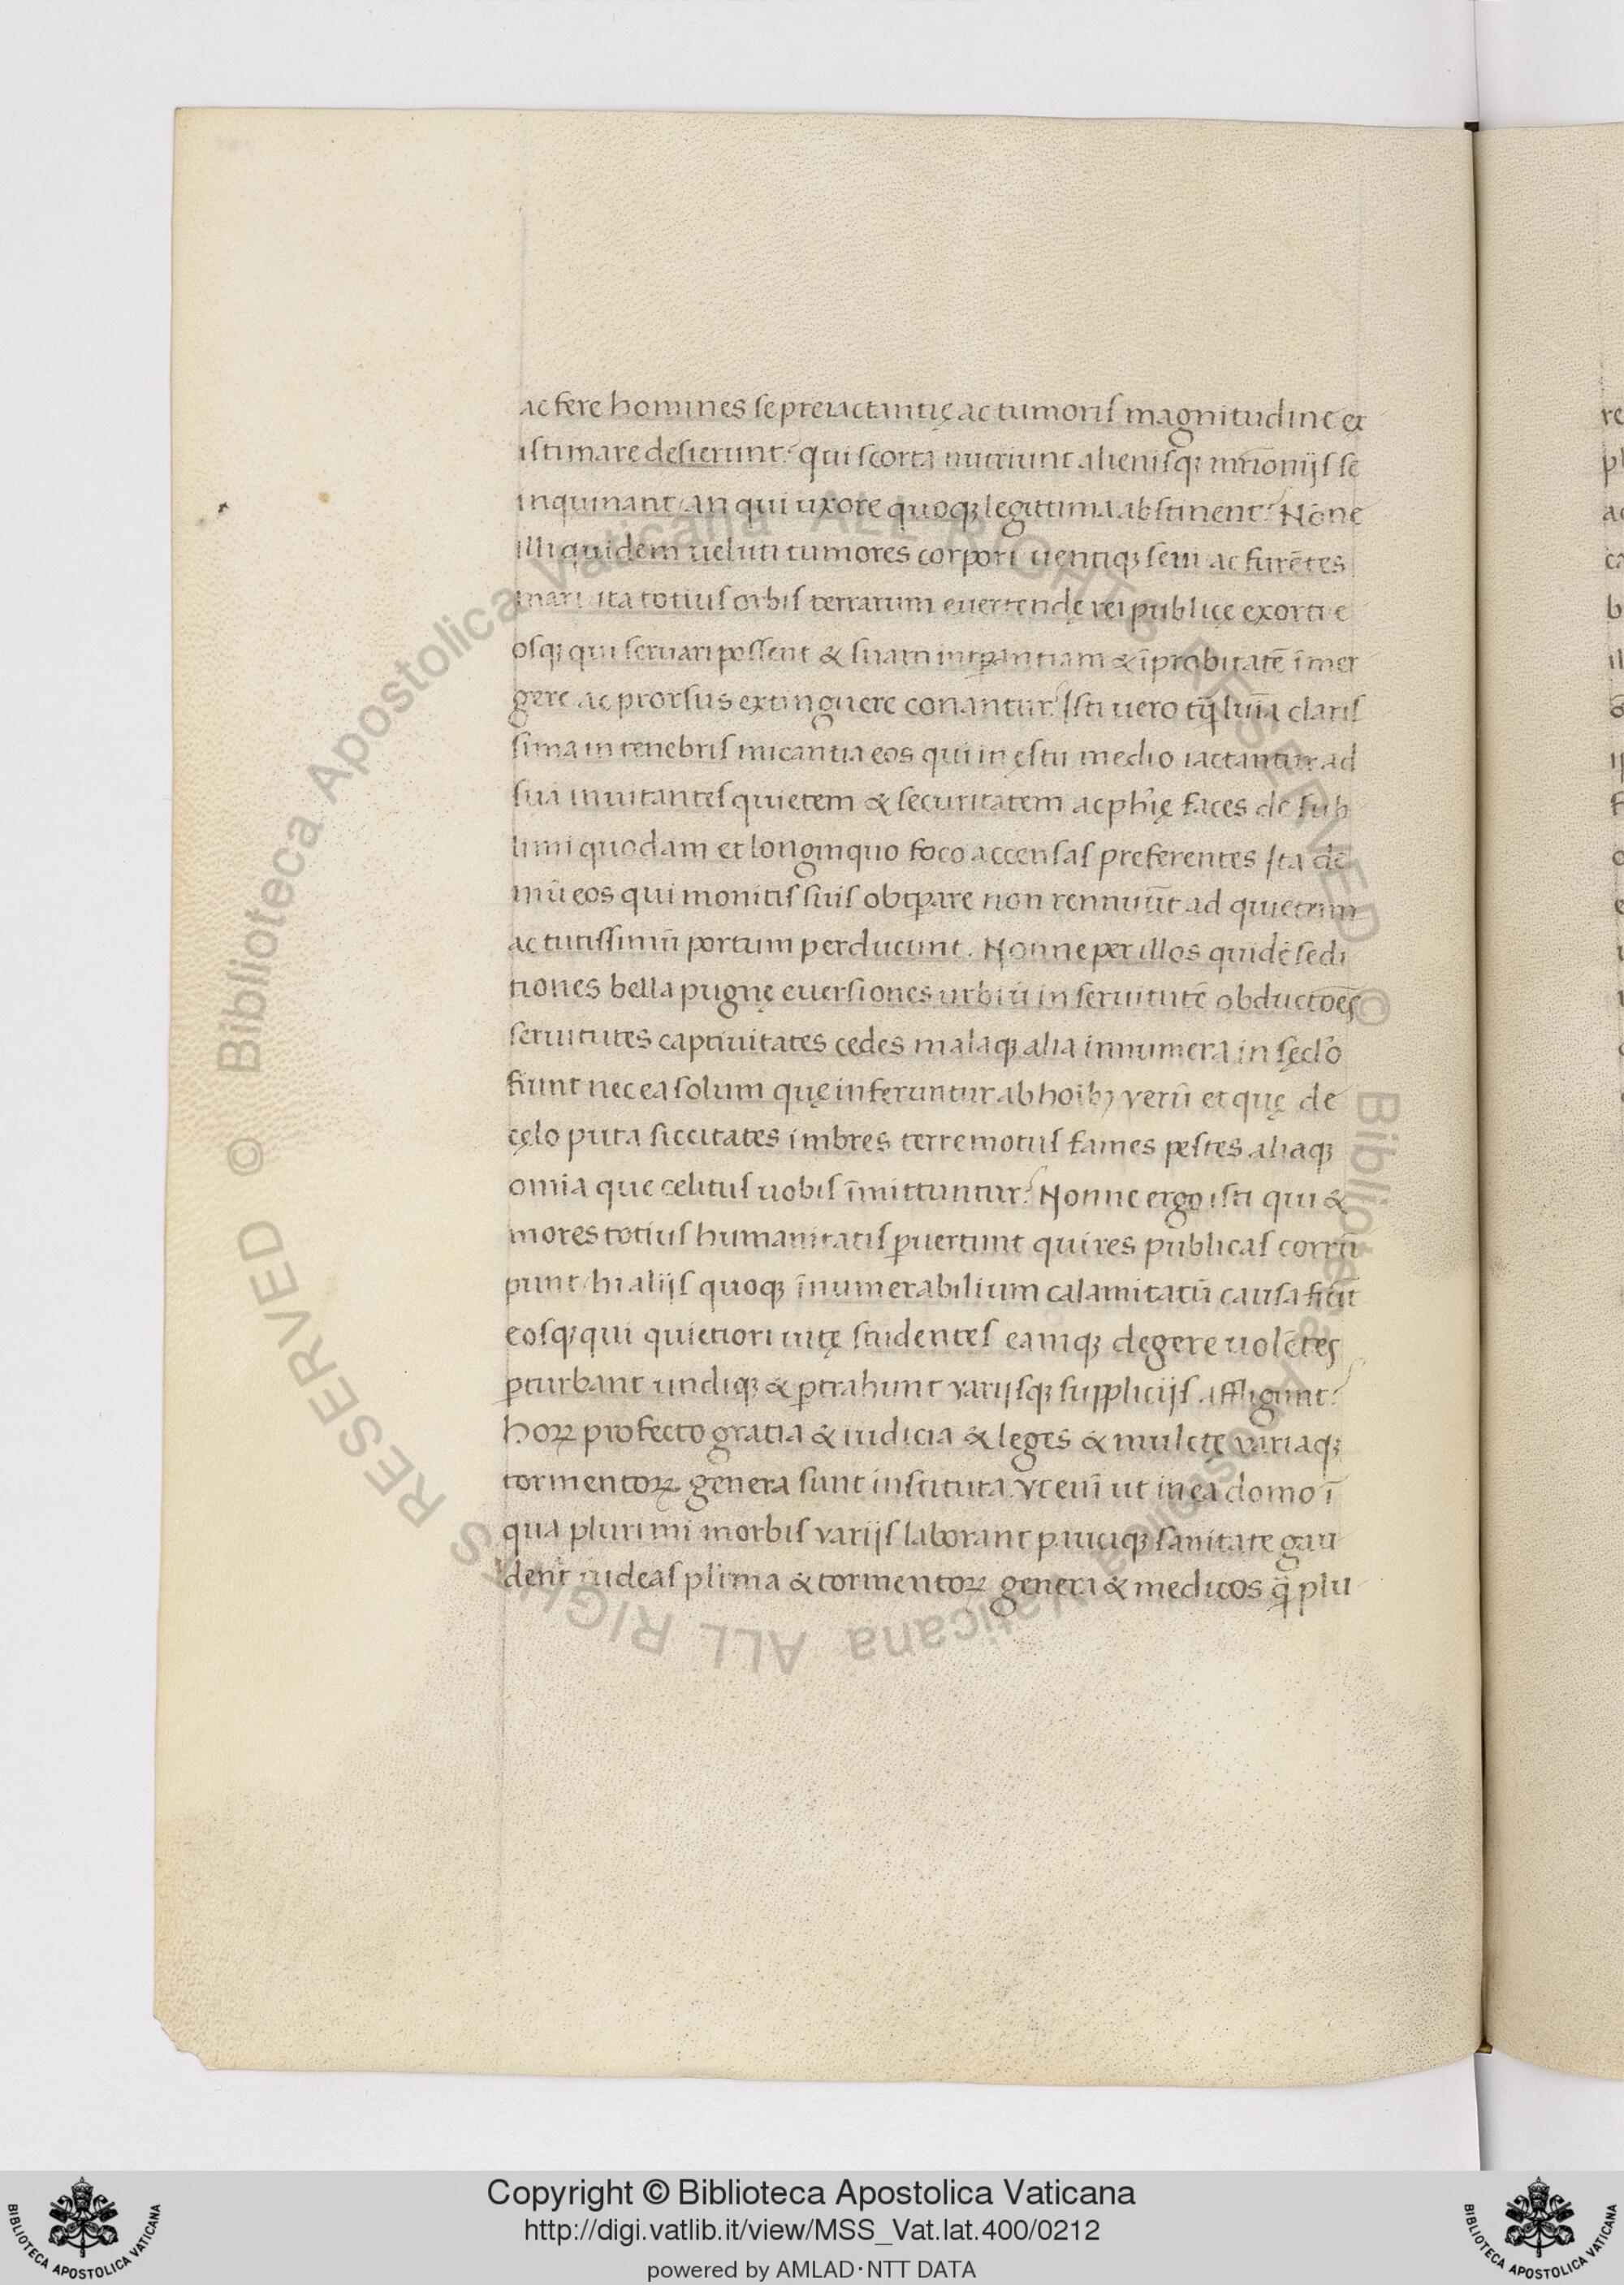 ac fere homines se pre iactantię ac tumoris magnitudine ex
istimare desierunt? qui scorta nutriunt alienisq; mr̄ioniȷs se
inquinant / an qui uxore quoq; legittima abstinent? Nōne
illi quidem ueluti tumores corpori uentiq; seui ac furētes
mari ita totius orbis terrarum euertendę rei publicę exorti e
osq; qui seruari possent & suam intꝑantiam & īprobitatē īmer
gere ac prorsus extinguere conantur? Isti uero tq̄ luīa claris
sima in tenebris micantia eos qui in ęstu medio iactantur ad
suā inuitantes quietem & securitatem ac ph'ię faces de sub
limi quodam et longinquo foco accensas preferentes Ita de
mū eos qui monitis suis obtꝑare non rennuūt ad quietem
ac tutissimū portum perducunt. Nonne per illos quidē sedi
tiones bella pugnę euersiones urbiū in seruitutē obductōes
seruitutes captiuitates cędes malaq; alia innumera in sęcło
fiunt nec ea solum quę inferuntur ab hoīb; verū et quę de
cęlo puta siccitates imbres terremotus fames pestes aliaq;
omīa que celitus uobis īmittuntur? Nonne ergo isti qui &
mores totius humanitatis ꝑuertunt qui res publicas corrū
punt / hi aliȷs quoq; īnumerabilium calamitatū causa fiūt
eosq; qui quietiori uitę studentes eamq; degere uolētes
ꝑturbant undiq; & ꝑtrahunt variȷsq; suppliciȷs affligunt?
hoꝝ profecto gratia & iudicia & leges & mulctę variaq;
tormentoꝝ genera sunt instituta. Vt enī ut in ea domo ī
qua plurimi morbis variȷs laborant pauciq; sanitate gau
dent uideas pl'ima & tormentoꝝ genera & medicos q̄ plu
Copyright © Biblioteca Apostolica Vaticana
http://digi.vatlib.it/view/MSS_Vat.lat.400/0212
powered by AMLAD·NTT DATA